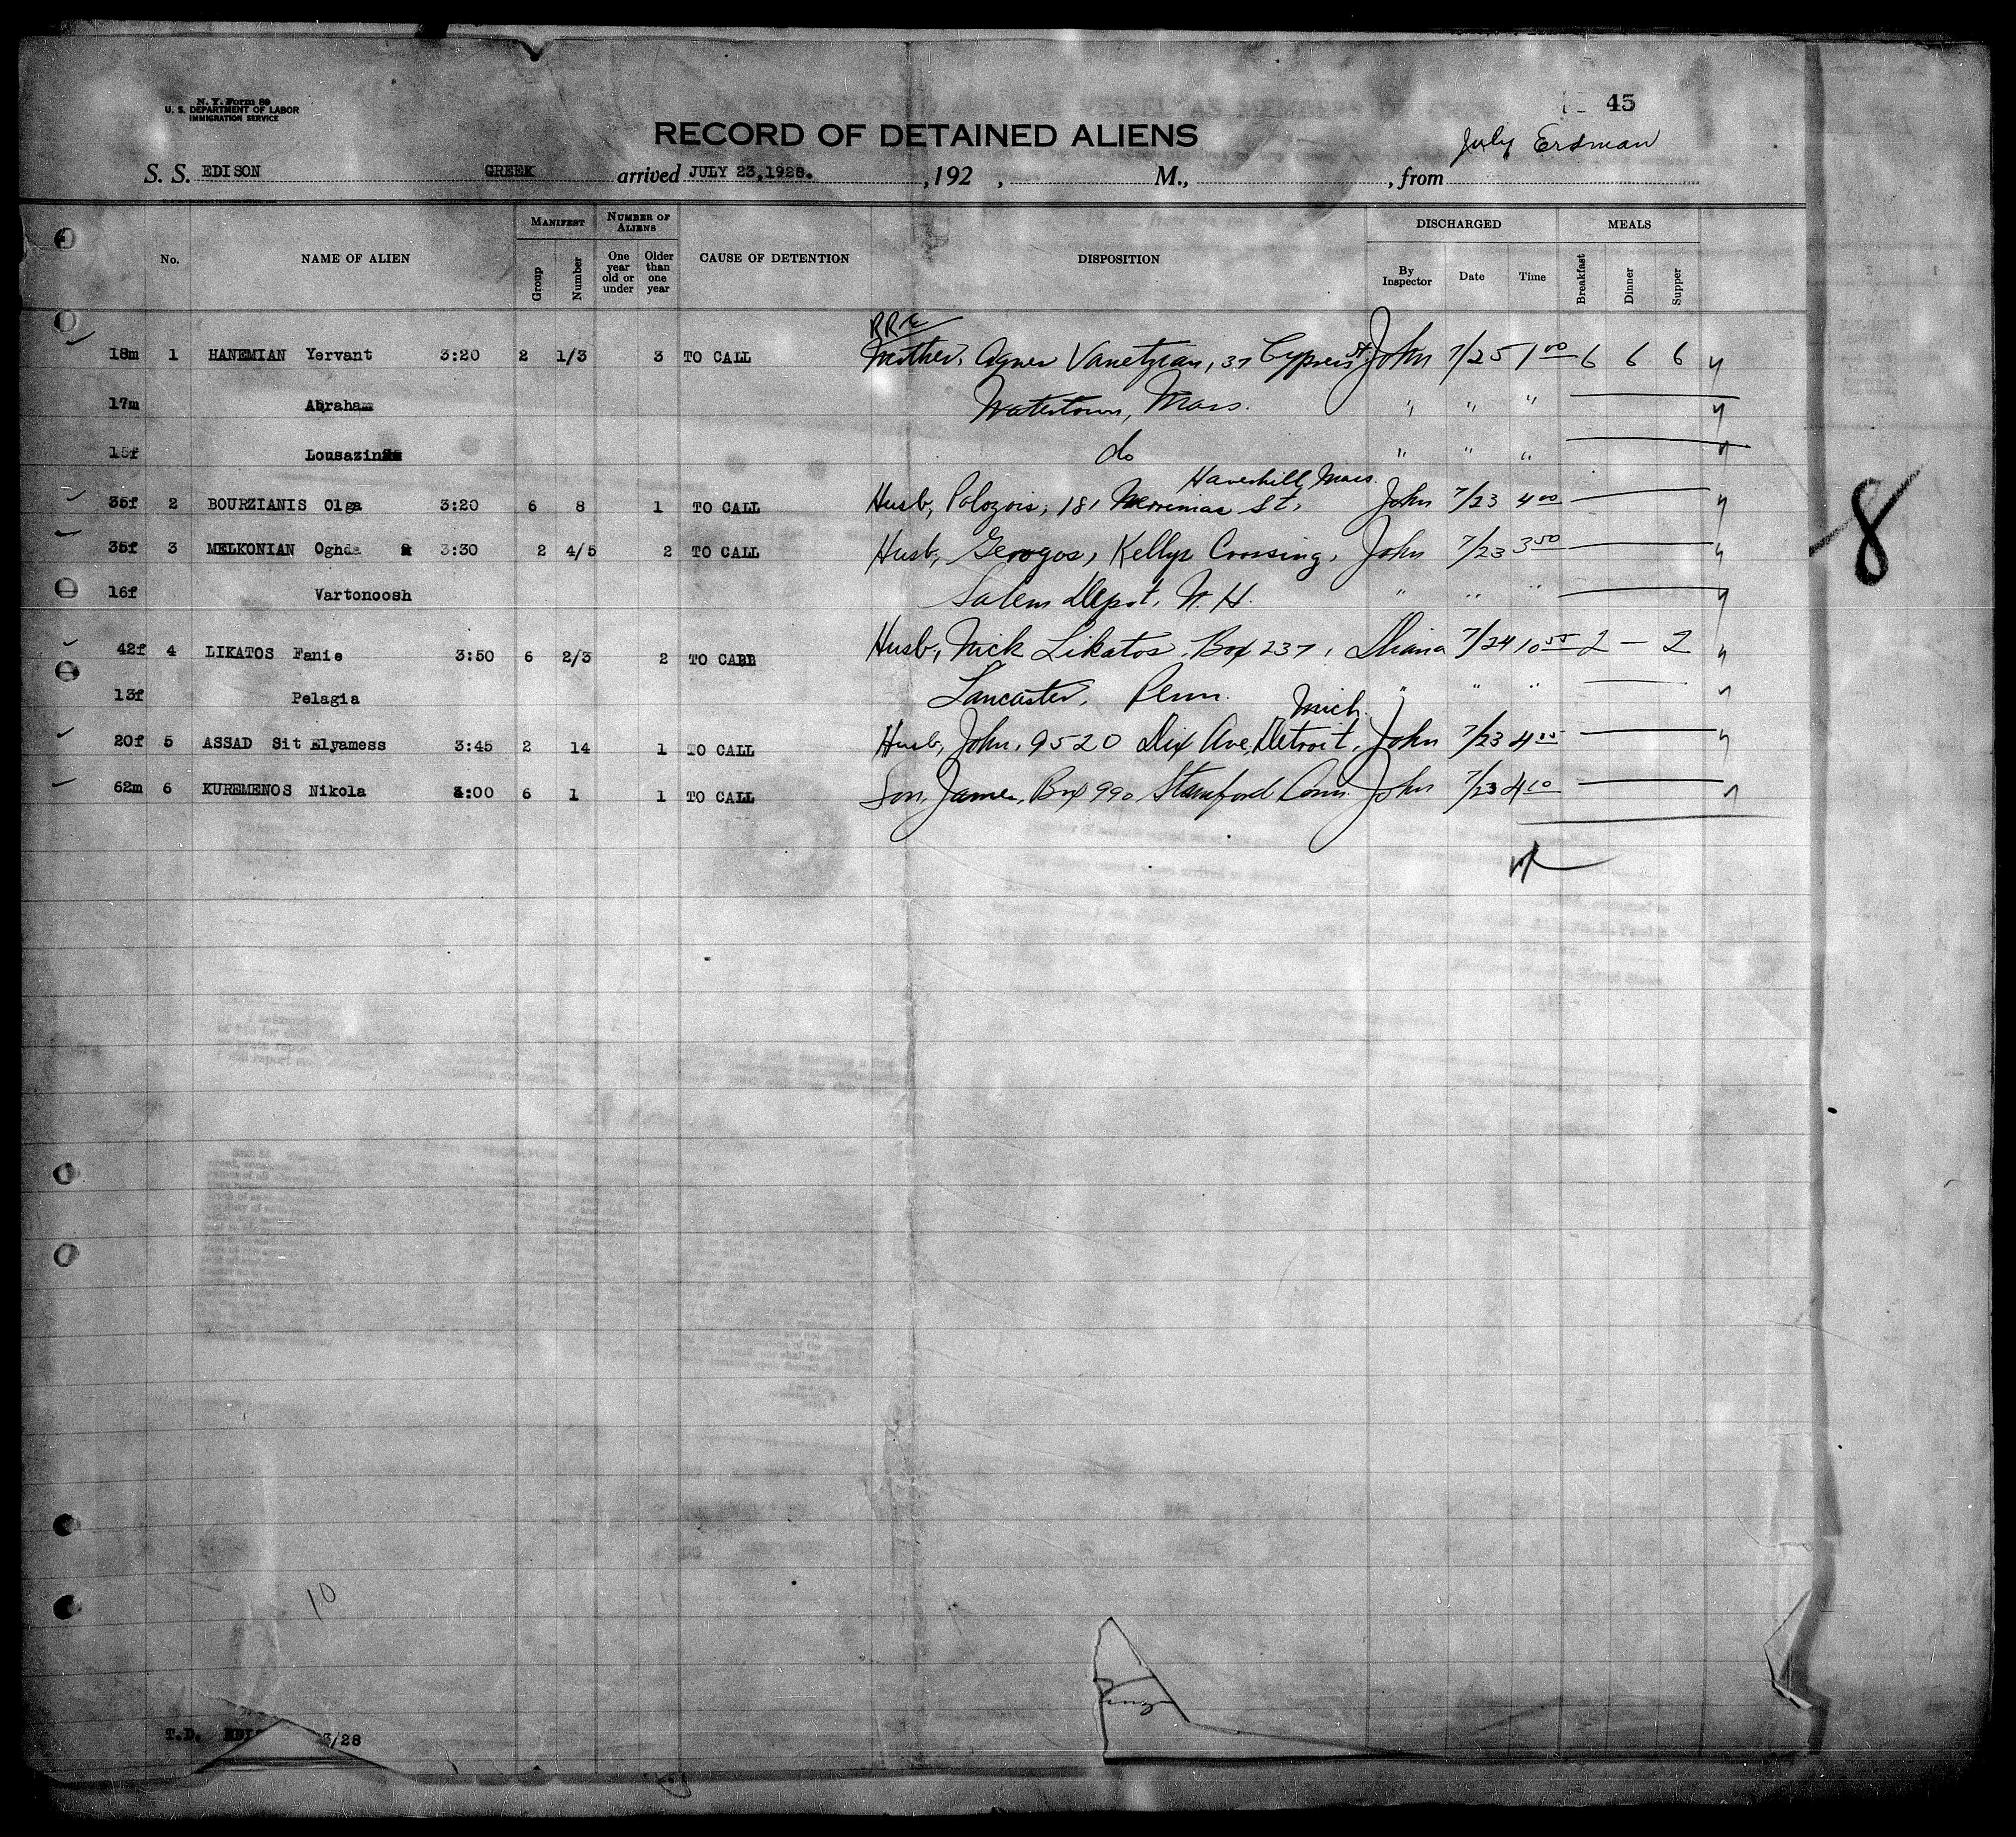 N. Y. Form 89
U. S. DEPARTMENT OF LABOR
IMMIGRATION SERVICE
45
RECORD OF DETAINED ALIENS
July Erdman
S. S. EDISON GREEK arrived JULY 23,1928. ,192 , M., , from
MANIFEST NUMBER OF ALIENS DISCHARGED MEALS
No. NAME OF ALIEN Group Number One year old or under Older than one year CAUSE OF DETENTION DISPOSITION By Inspector Date Time Breakfast Dinner Supper
18m 1 HANEMIAN Yervant 3:20 2 1/3 3 TO CALL Mother, Agnes Vanetzian, 37 Cypress St. John 7/25 1 00 6 6 6
17m Abraham Watertown, Mass. " " "
15f do " " "
Haverhill, Mass.
35f 2 BOURZIANIS Olga 3:20 6 8 1 TO CALL Husb, Polozois, 181 Merrimac St. John 7/23 4 00
35f 3 MELKONIAN Oghda 3:30 2 4/5 2 TO CALL Husb, Georgos, Kellys Crossing, John 7/23 3 50
16f Vartonoosh Salem Depot, N. H. " " "
42f 4 LIKATOS Fanie 3:50 6 2/3 2 TO CALL Husb, Nick Likatos, Box 237, 7/24 10 55 2 – 2
13f Pelagia Lancaster, Penn. " " "
Mich.
20f 5 ASSAD Sit Elyamess 3:45 2 14 1 TO CALL Husb, John, 9520 Dix Ave, Detroit, John 7/23 4 05
62m 6 KUREMENOS Nikola :00 6 1 1 TO CALL Son, James, Box 990 Stamford Conn. John 7/23 4 10
8
10
T.D. EDI 3/28